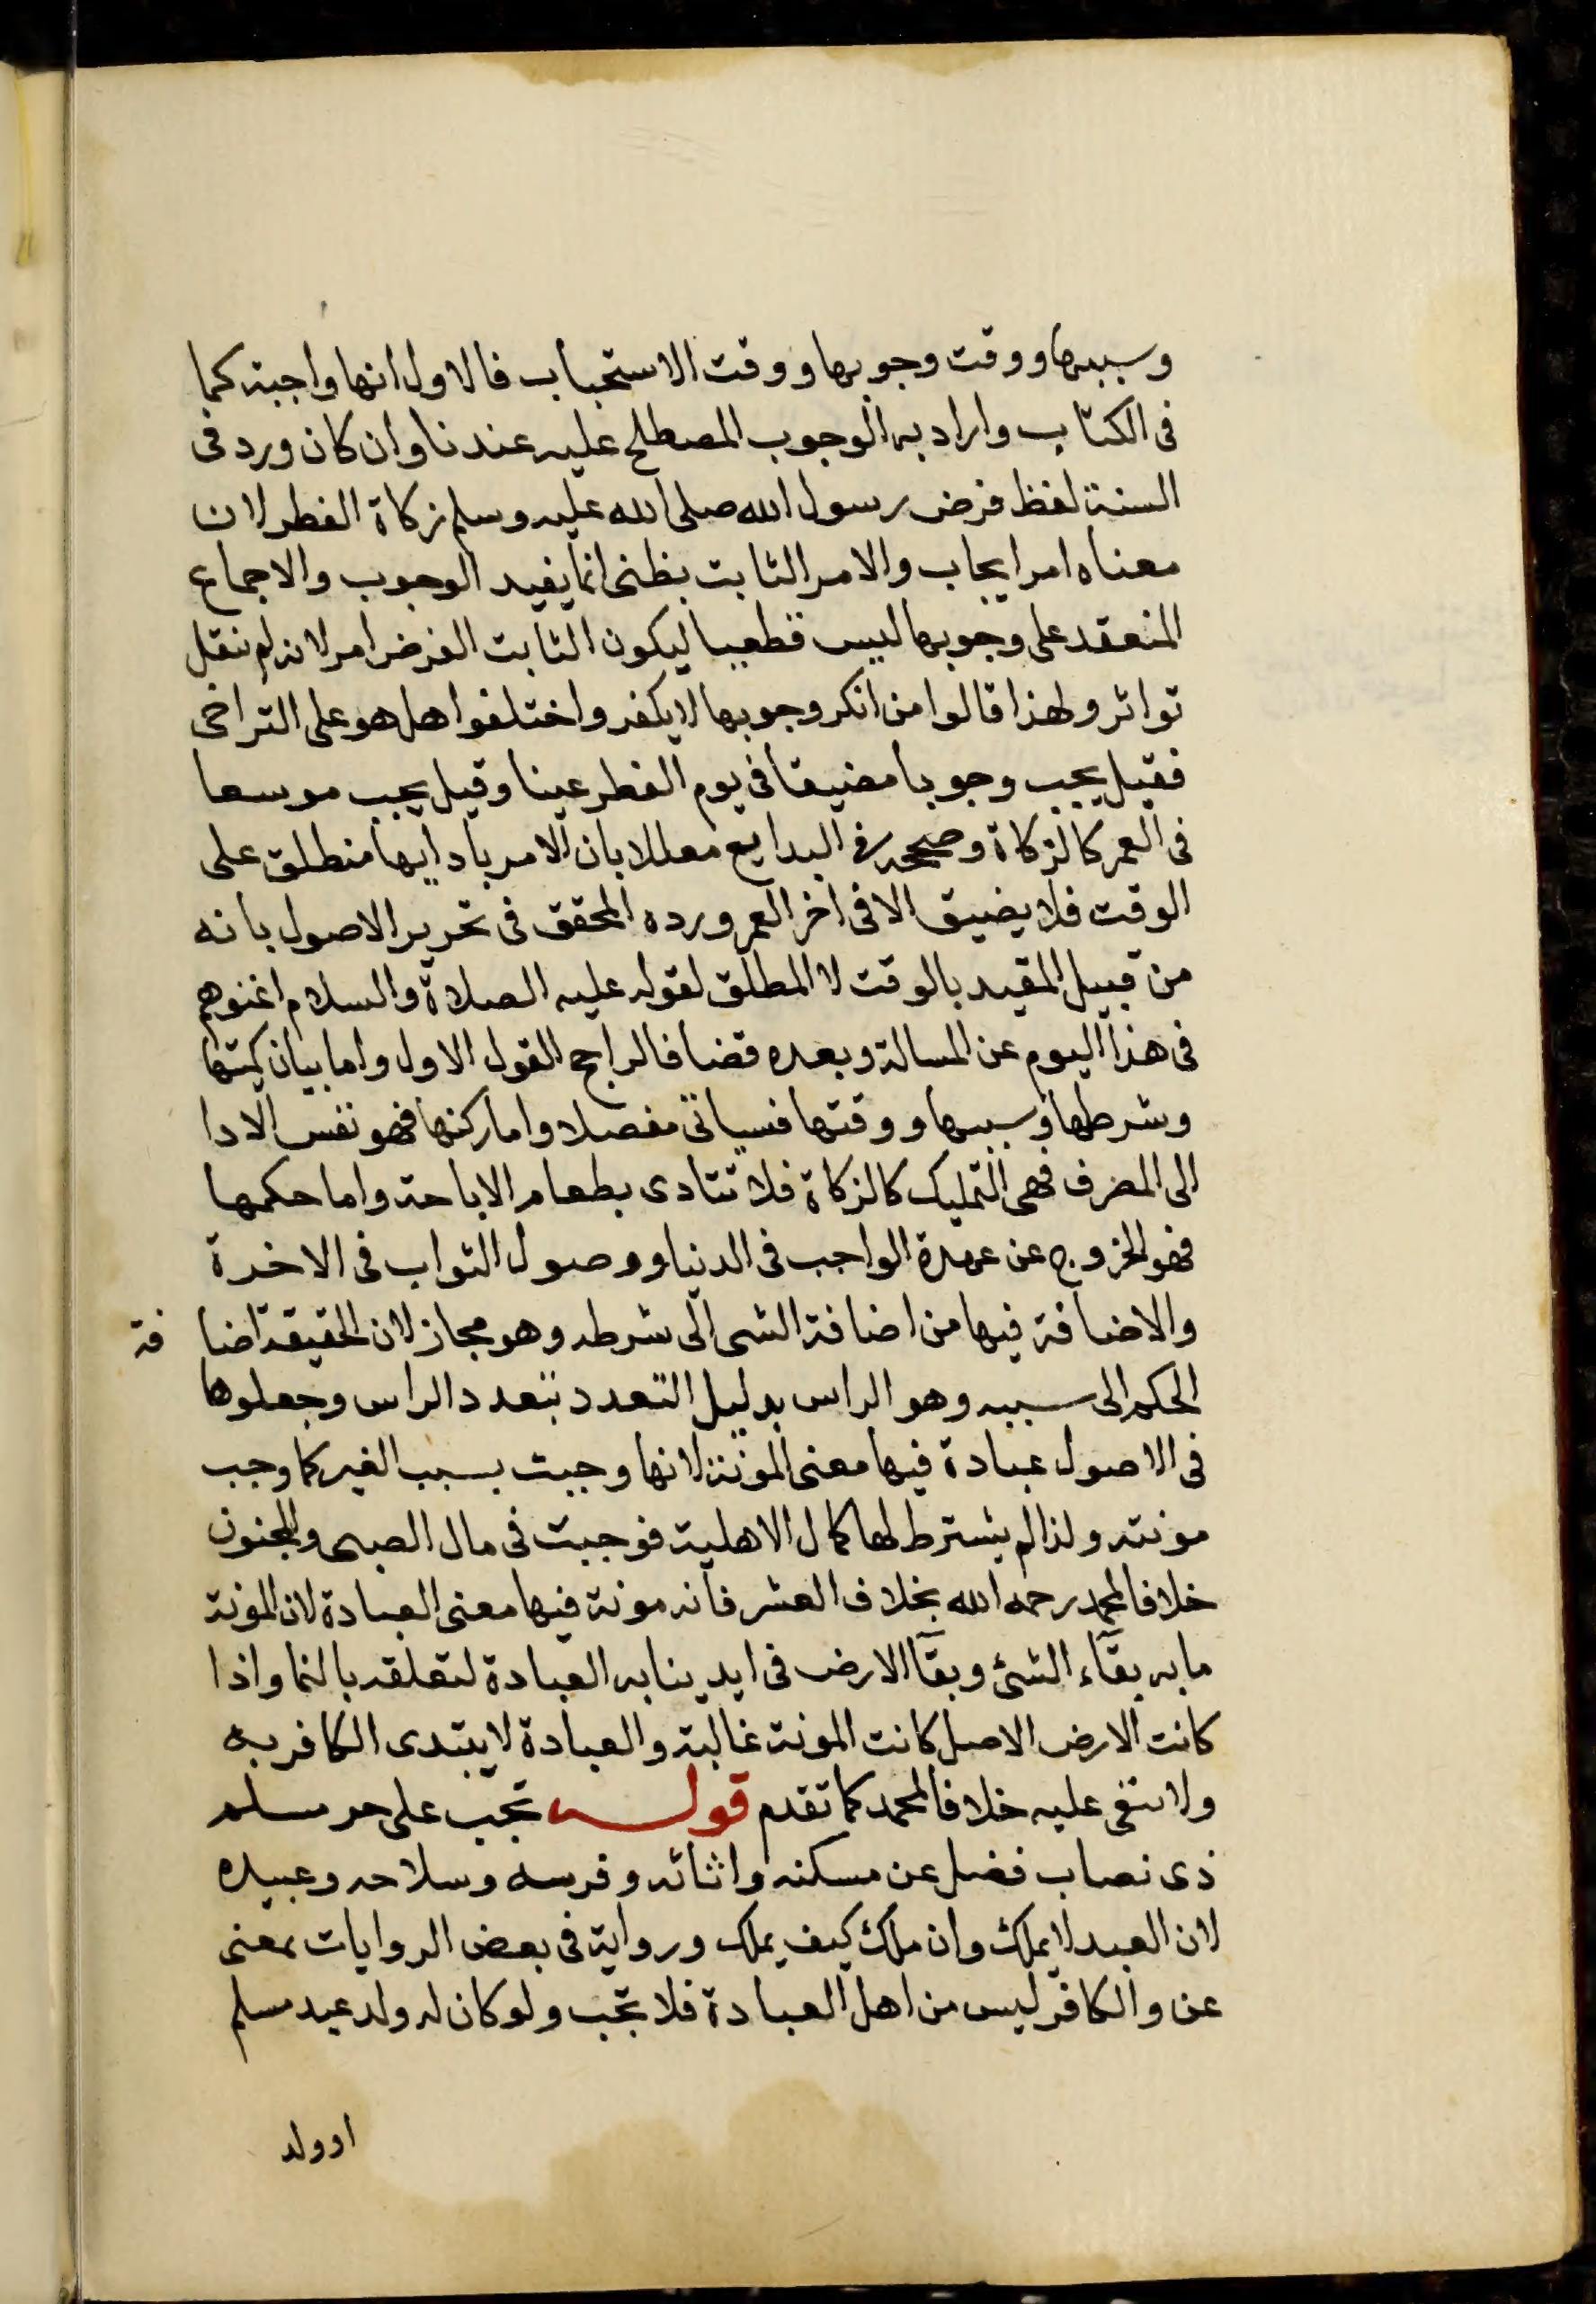 وسببها ووقت وجوبها ووقت الاستحباب فالاول انها واجبة كما
فى الكتاب واراد به الوجوب المصطلح عليه عندنا وان كان ورد فى
السنة لفظ فرض رسول الله صلى الله عليه وسلم زكاة الفطر لان
معناه امر ايجاب والامر الثابت بظنى انما يفيد الوجوب والاجماع
المنعقد على وجوبها ليس قطعيا ليكون الثابت الفرض امر لانه لم ينقل
تواتر ولهذا قالوا من انكر وجوبها لا يكفر واختلفوا هل هو على التراخى
فقيل يجب وجوبا مضيقا فى يوم الفطر عينا وقيل يجب موسعا
فى العمر كالزكاة وصححه فى البدايع معللا بان الامر بادايها منطلق على
الوقت فلا يضيق الا فى اخر العمر ورده المحقق فى تحرير الاصول بانه
من قبيل المقيد بالوقت لا المطلق لقوله عليه الصلاة والسلام اغنوهم
فى هذا اليوم عن المسالة وبعده قضا فالراجح القول الاول واما بيان كميتها
وشرطها وسببها ووقتها فسياتى مفصلا واما ركنها فهو نفس الادا
الى المصرف فهى التمليك كالزكاة فلا تتادى بطعام الاباحة واما حكمها
فهو الخروج عن عهدة الواجب فى الدنيا ووصول الثواب فى الاخرة
والاضافة فيها من اضافة الشى الى شرطه وهو مجاز لان الحقيقة اضا فة
الحكم الى سببه وهو الراس بدليل التعدد بتعدد الراس وجعلوها
فى الاصول عبادة فيها معنى المونة لانها وجبت بسبب الغير كما وجب
مونته ولذا لم يشترط لها كمال الاهلية فوجبت فى مال الصبى والمجنون
خلافا لمحمد رحمه الله بخلاف العشر فانه مونة فيها معنى العبادة لان المونة
ما به بقآء الشئ وبقآ الارض فى ايدينا به العبادة لتعلقه بالنما واذا
كانت الارض الاصل كانت المونة غالبة والعبادة لا يبتدى الكافر به
ولا تبقى عليه خلافا لمحمد كما تقدم قوله تجب على حر مسلم
ذى نصاب فضل عن مسكنه واثاثه وفرسه وسلاحه وعبيده
لان العبد لا يملك وان ملك كيف يملك ورواية فى بعض الروايات بمعنى
عن والكافر ليس من اهل العبادة فلا تجب ولو كان له ولد عبد مسلم
او ولد